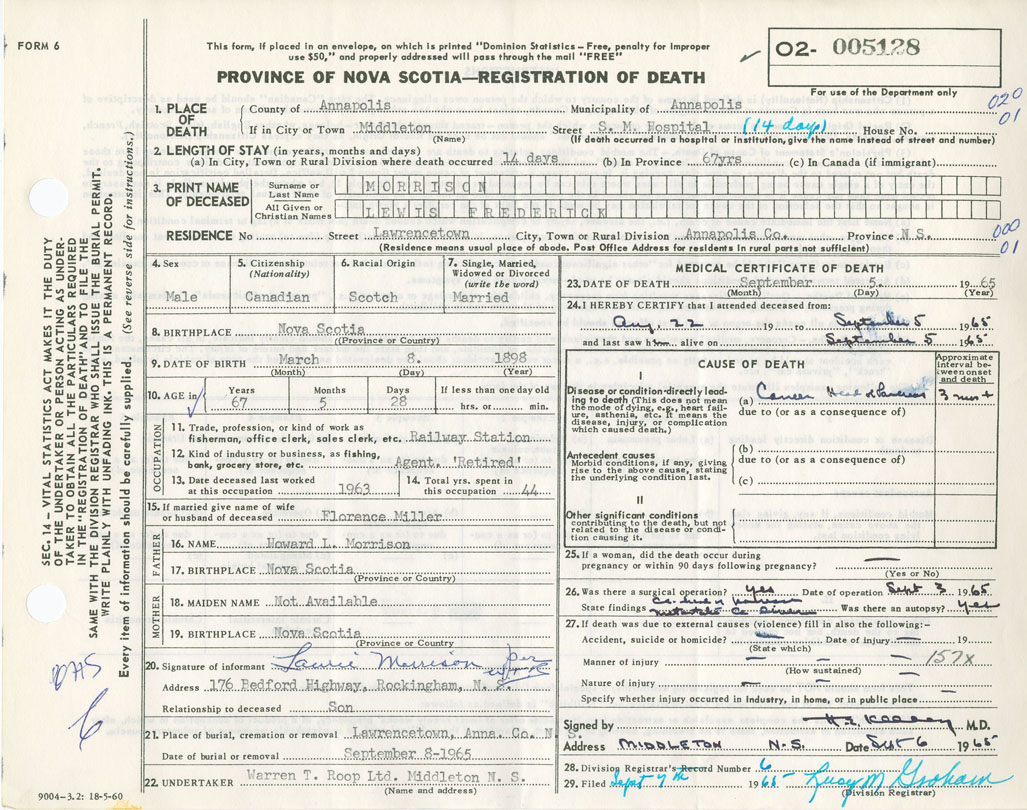 FORM 6
This form, if placed in an envelope, on which is printed "Dominion Statistics – Free, penalty for improper
use $50," and properly addressed will pass through the mail "FREE"
PROVINCE OF NOVA SCOTIA—REGISTRATION OF DEATH
O2- 005128
For use of the Department only
020
01
SEC. 14 – VITAL STATISTICS ACT MAKES IT THE DUTY
OF THE UNDERTAKER OR PERSON ACTING AS UNDER-
TAKER TO OBTAIN ALL THE PARTICULARS REQUIRED
IN THE "REGISTRATION OF DEATH" AND TO FILE THE
SAME WITH THE DIVISION REGISTRAR WHO SHALL ISSUE THE BURIAL PERMIT.
WRITE PLAINLY WITH UNFADING INK. THIS IS A PERMANENT RECORD.
Every item of information should be carefully supplied. (See reverse side for instructions.)
1. PLACE OF DEATH
County of Annapolis Municipality of Annapolis
If in City or Town Middleton Street S. M. Hospital (14 days) House No.
(Name) (If death occurred in a hospital or institution, give the name instead of street and number)
2. LENGTH OF STAY (in years, months and days)
(a) In City, Town or Rural Division where death occurred 14 days (b) In Province 67yrs. (c) In Canada (if immigrant)
3. PRINT NAME OF DECEASED
Surname or Last Name MORRISON
All Given or Christian Names LEWIS FREDERICK
RESIDENCE No Street Lawrencetown City, Town or Rural Division Annapolis Co. Province N S.
(Residence means usual place of abode. Post Office Address for residents in rural parts not sufficient)
000
01
4. Sex
Male
5. Citizenship (Nationality)
Canadian
6. Racial Origin
Scotch
7. Single, Married, Widowed or Divorced (write the word)
Married
8. BIRTHPLACE Nova Scotia
((Province or Country)
9. DATE OF BIRTH March 8. 1898
(Month) (Day) (Year)
10. AGE in
Years Months Days If less than one day old
67 5 28 hrs. or min.
OCCUPATION
11. Trade, profession, or kind of work as
fisherman, office clerk, sales clerk, etc. Railway Station
12. Kind of industry or business, as fishing,
bank, grocery store, etc. Agent. 'Retired'
13. Date deceased last worked
at this occupation 1963
14. Total yrs. spent in
this occupation 44
15. If married give name of wife
or husband of deceased Florence Miller
FATHER
16. NAME Howard L. Morrison
17. BIRTHPLACE Nova Scotia
(Province or Country)
MOTHER
18. MAIDEN NAME Not Available
19. BIRTHPLACE Nova Scotia
(Province or Country)
20. Signature of informant Laurie Morrison per
Address 176 Bedford Highway, Rockingham, N. S.
Relationship to deceased Son
21. Place of burial, cremation or removal Lawrencetown, Anna. Co. N. S.
Date of burial or removal September 8-1965
22. UNDERTAKER Warren T. Roop Ltd. Middleton N. S.
(Name and address)
MEDICAL CERTIFICATE OF DEATH
23. DATE OF DEATH September 5. 19 65
(Month) (Day) (Year)
24. I HEREBY CERTIFY that I attended deceased from:
Aug. 22 19 to September 5 1965
and last saw him alive on September 5 1965
CAUSE OF DEATH
Approximate interval between onset and death
I
Disease or condition directly lead-
ing to death (This does not mean
the mode of dying, e.g., heart fail-
ure, asthenia, etc. It means the
disease, injury, or complication
which caused death.)
(a) Cancer Head of Pancreas 3 mos +
due to (or as a consequence of)
Antecedent causes
Morbid conditions, if any, giving
rise to the above cause, stating
the underlying condition last.
(b)
due to (or as a consequence of)
(c)
II
Other significant conditions
contributing to the death, but not
related to the disease or condi-
tion causing it.
25. If a woman, did the death occur during
pregnancy or within 90 days following pregnancy? —
(Yes or No)
26. Was there a surgical operation? yes Date of operation Sept 3 1965
State findings Ca. head of pancreas
metastatic Ca Liver Was there an autopsy? yes
27. If death was due to external causes (violence) fill in also the following:–
Accident, suicide or homicide? — Date of injury — 19
(State which)
Manner of injury — — — 157x
(How sustained)
Nature of injury — —
Specify whether injury occurred in Industry, in home, or in public place
Signed by M.D.
Address MIDDLETON N.S. Date Sept 6 1965
28. Division Registrar's Record Number 6
29. Filed Sept 7th 1965 Lucy M. Graham
(Division Registrar)
6
9004-3.2: 18-5-60